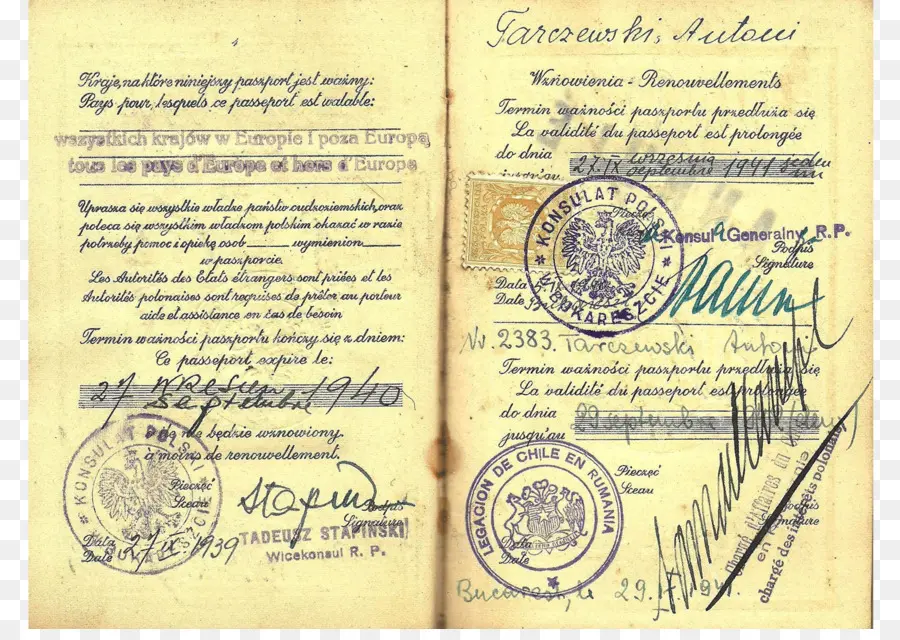 4
Kraje, na które niniejszy paszport jest ważny:
Pays pour lesquels ce passeport est walable:
wszystkich krajów w Europie i poza Europą
tous les pays d'Europe et hors d'Europe
Uprasza się wszystkie władze państw cudzoziemskich, oraz
poleca się wszystkim władzom polskim okazać w razie
potrzeby pomoc i opiekę osob wymienion
w paszporcie.
Les Autorités des Etats étrangers sont priées et les
Autorités polonaises sont requises de prêter au porteur
aide et assistance en cas de besoin
Termin ważności paszportu kończy się z dniem:
Ce passeport expire le:
27 września 1940
septembre
nie będzie wznowiony.
à moins de renouvellement.
KONSULAT POLSKI
Pieczęć
Sceau
Podpis
Signature
TADEUSZ STAPIŃSKI
Wicekonsul R. P.
Data
Date
27 IX 1939
Tarczewski, Antoni
Wznowienia - Renouvellements
Termin ważności paszportu przedłuża się
La validité du passeport est prolongée
do dnia
jusqu'au
27.IX września 1941
septembre
KONSULAT POLSKI
W BUKARESZCIE
Pieczęć
Konsul Generalny R. P.
Podpis
Signature
Data
Date
Nr. 2383. Tarczewski Antoni
Termin ważności paszportu przedłuża się
La validité du passeport est prolongée
do dnia
jusqu'au
29 septembre
LEGACION DE CHILE EN RUMANIA
Pieczęć
Sceau
Podpis
Signature
Chargé d'affaires du
chargé des intérêts polonais
Data
Date
Bucarest, le 29.